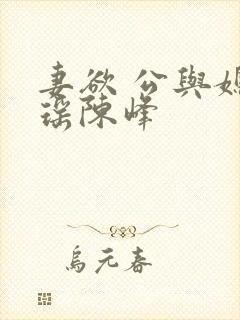 妻欲 公與
瑤陳峰
烏元春